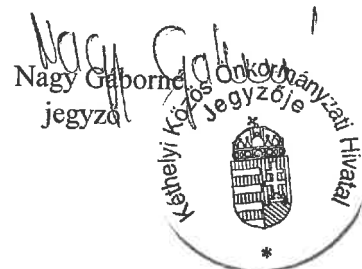 Nagy Gáborné
Nagy Gáborné
jegyző
Kéthelyi Közös Önkormányzati Hivatal
Jegyzője
*